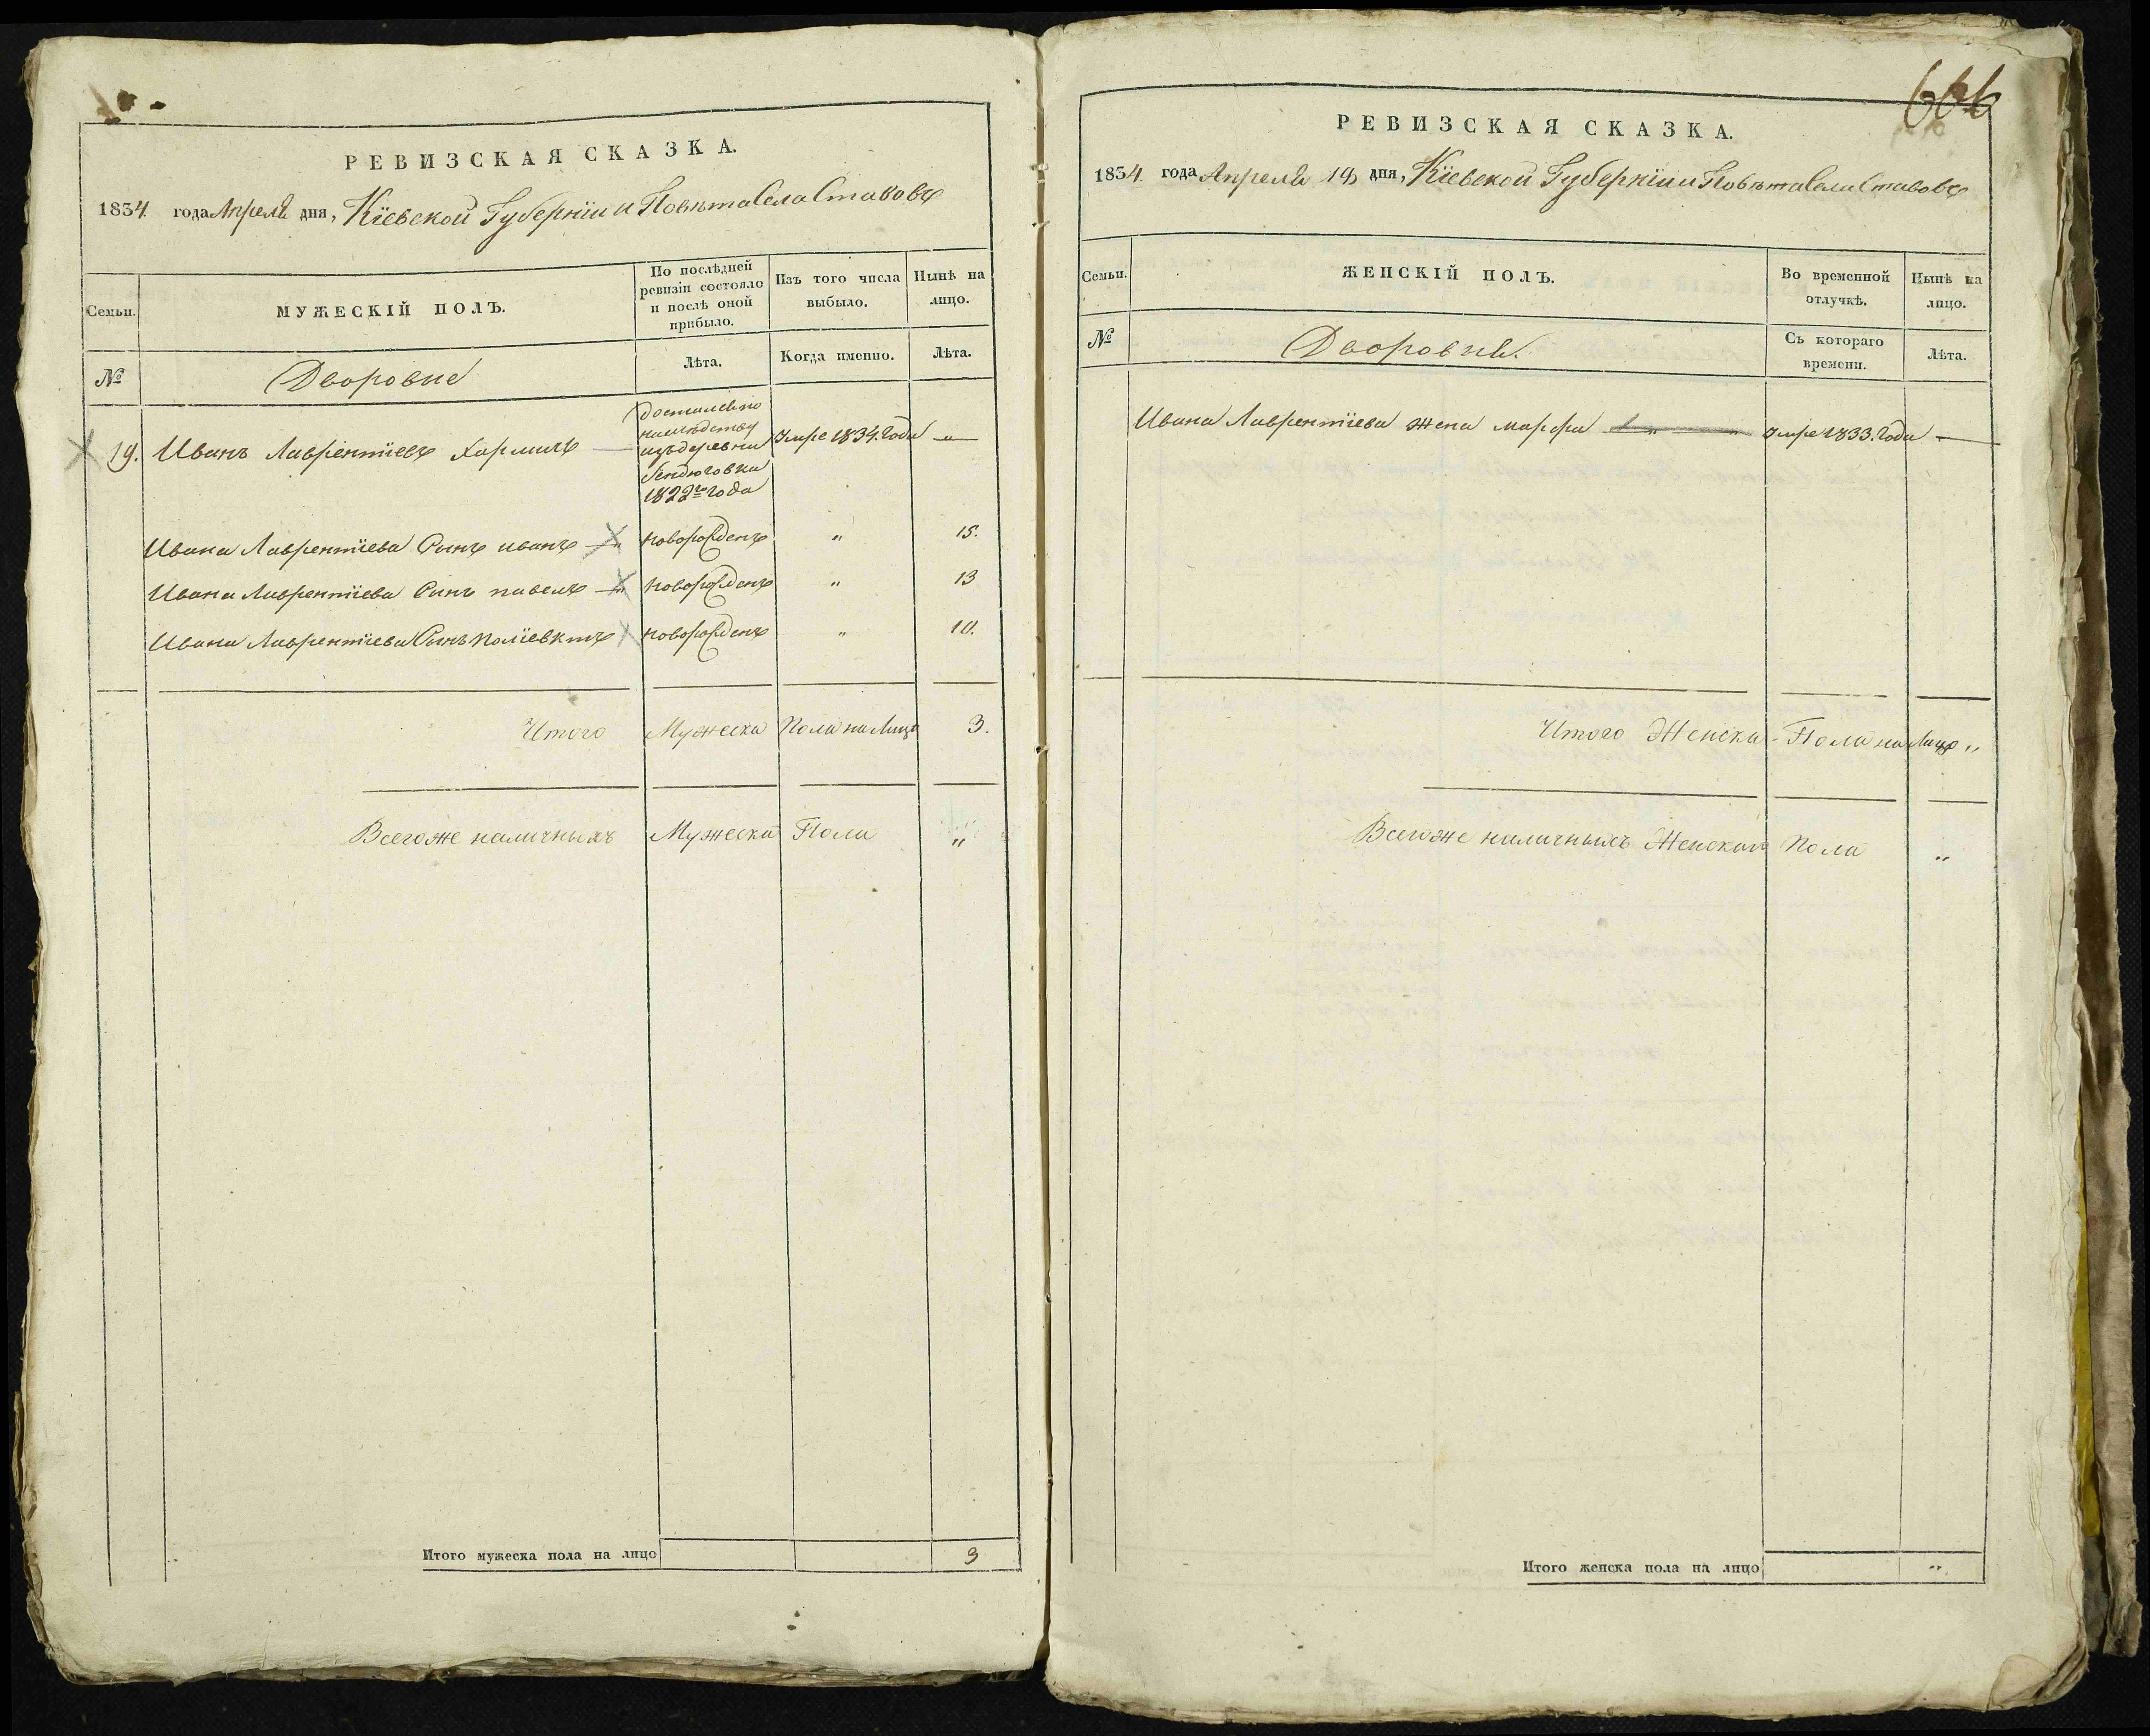 РЕВИЗСКАЯ СКАЗКА.
1834 года Апреля дня, Кіевской Губерніи и Повѣта Села Ставовъ
Семьи.
МУЖЕСКІЙ ПОЛЪ.
По послѣдней
ревизіи состояло
и послѣ оной
прибыло.
Изъ того числа
выбыло.
Нынѣ на
лицо.
№
Дворовые
Лѣта.
Когда именно.
Лѣта.
19. Иванъ Лаврентіевъ
досталсь по
наслѣдству
изъ деревни
1822го года
Умре 1834. Года "
Ивана Лаврентіева Сынъ иванъ " новорожденъ " 15.
Ивана Лаврентіева Сынъ павелъ " новорожденъ " 13
Ивана Лаврентіева Сынъ новорожденъ " 10.
Итого Мужеска Пола на Лицо 3.
Всегоже наличныхъ Мужеска Пола "
Итого мужеска пола на лицо 3
666
РЕВИЗСКАЯ СКАЗКА.
1834 года Апреля 18 дня, Кіевской Губерніи и Повѣта Села Ставовъ
Семьи.
ЖЕНСКІЙ ПОЛЪ.
Во временной
отлучкѣ.
Нынѣ на
лицо.
№
Дворовые.
Съ котораго
времени.
Лѣта.
Ивана Лаврентіева жена марфа " " умре 1833. Года
Итого Женска Пола на Лицо "
Всегоже наличныхъ Женскаго Пола "
Итого женска пола на лицо "